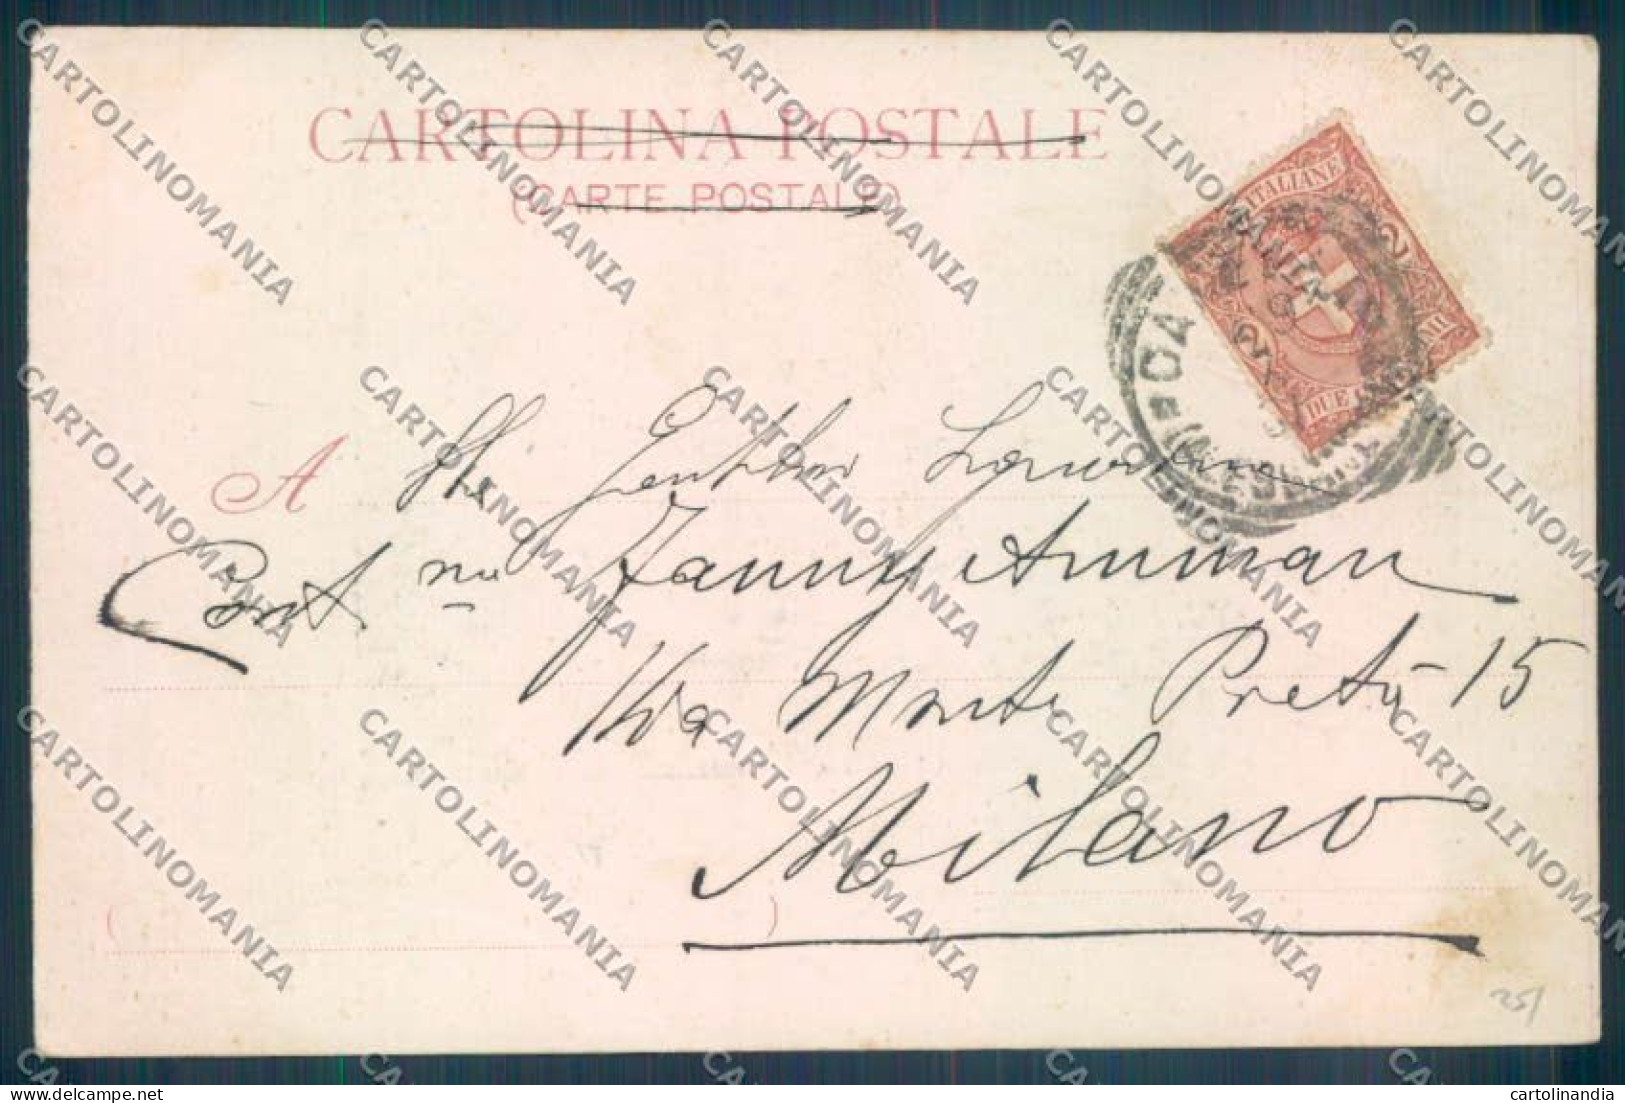 CARTOLINA POSTALE
(CARTE POSTALE)
POSTE ITALIANE
2 2
DUE CENTESIMI
A Alla Gentilma Signorina
Contna Fanny Amman
Via Monte Pietà 15
Milano
( )
251
CARTOLINOMANIA
cartolinandia
delcampe.net